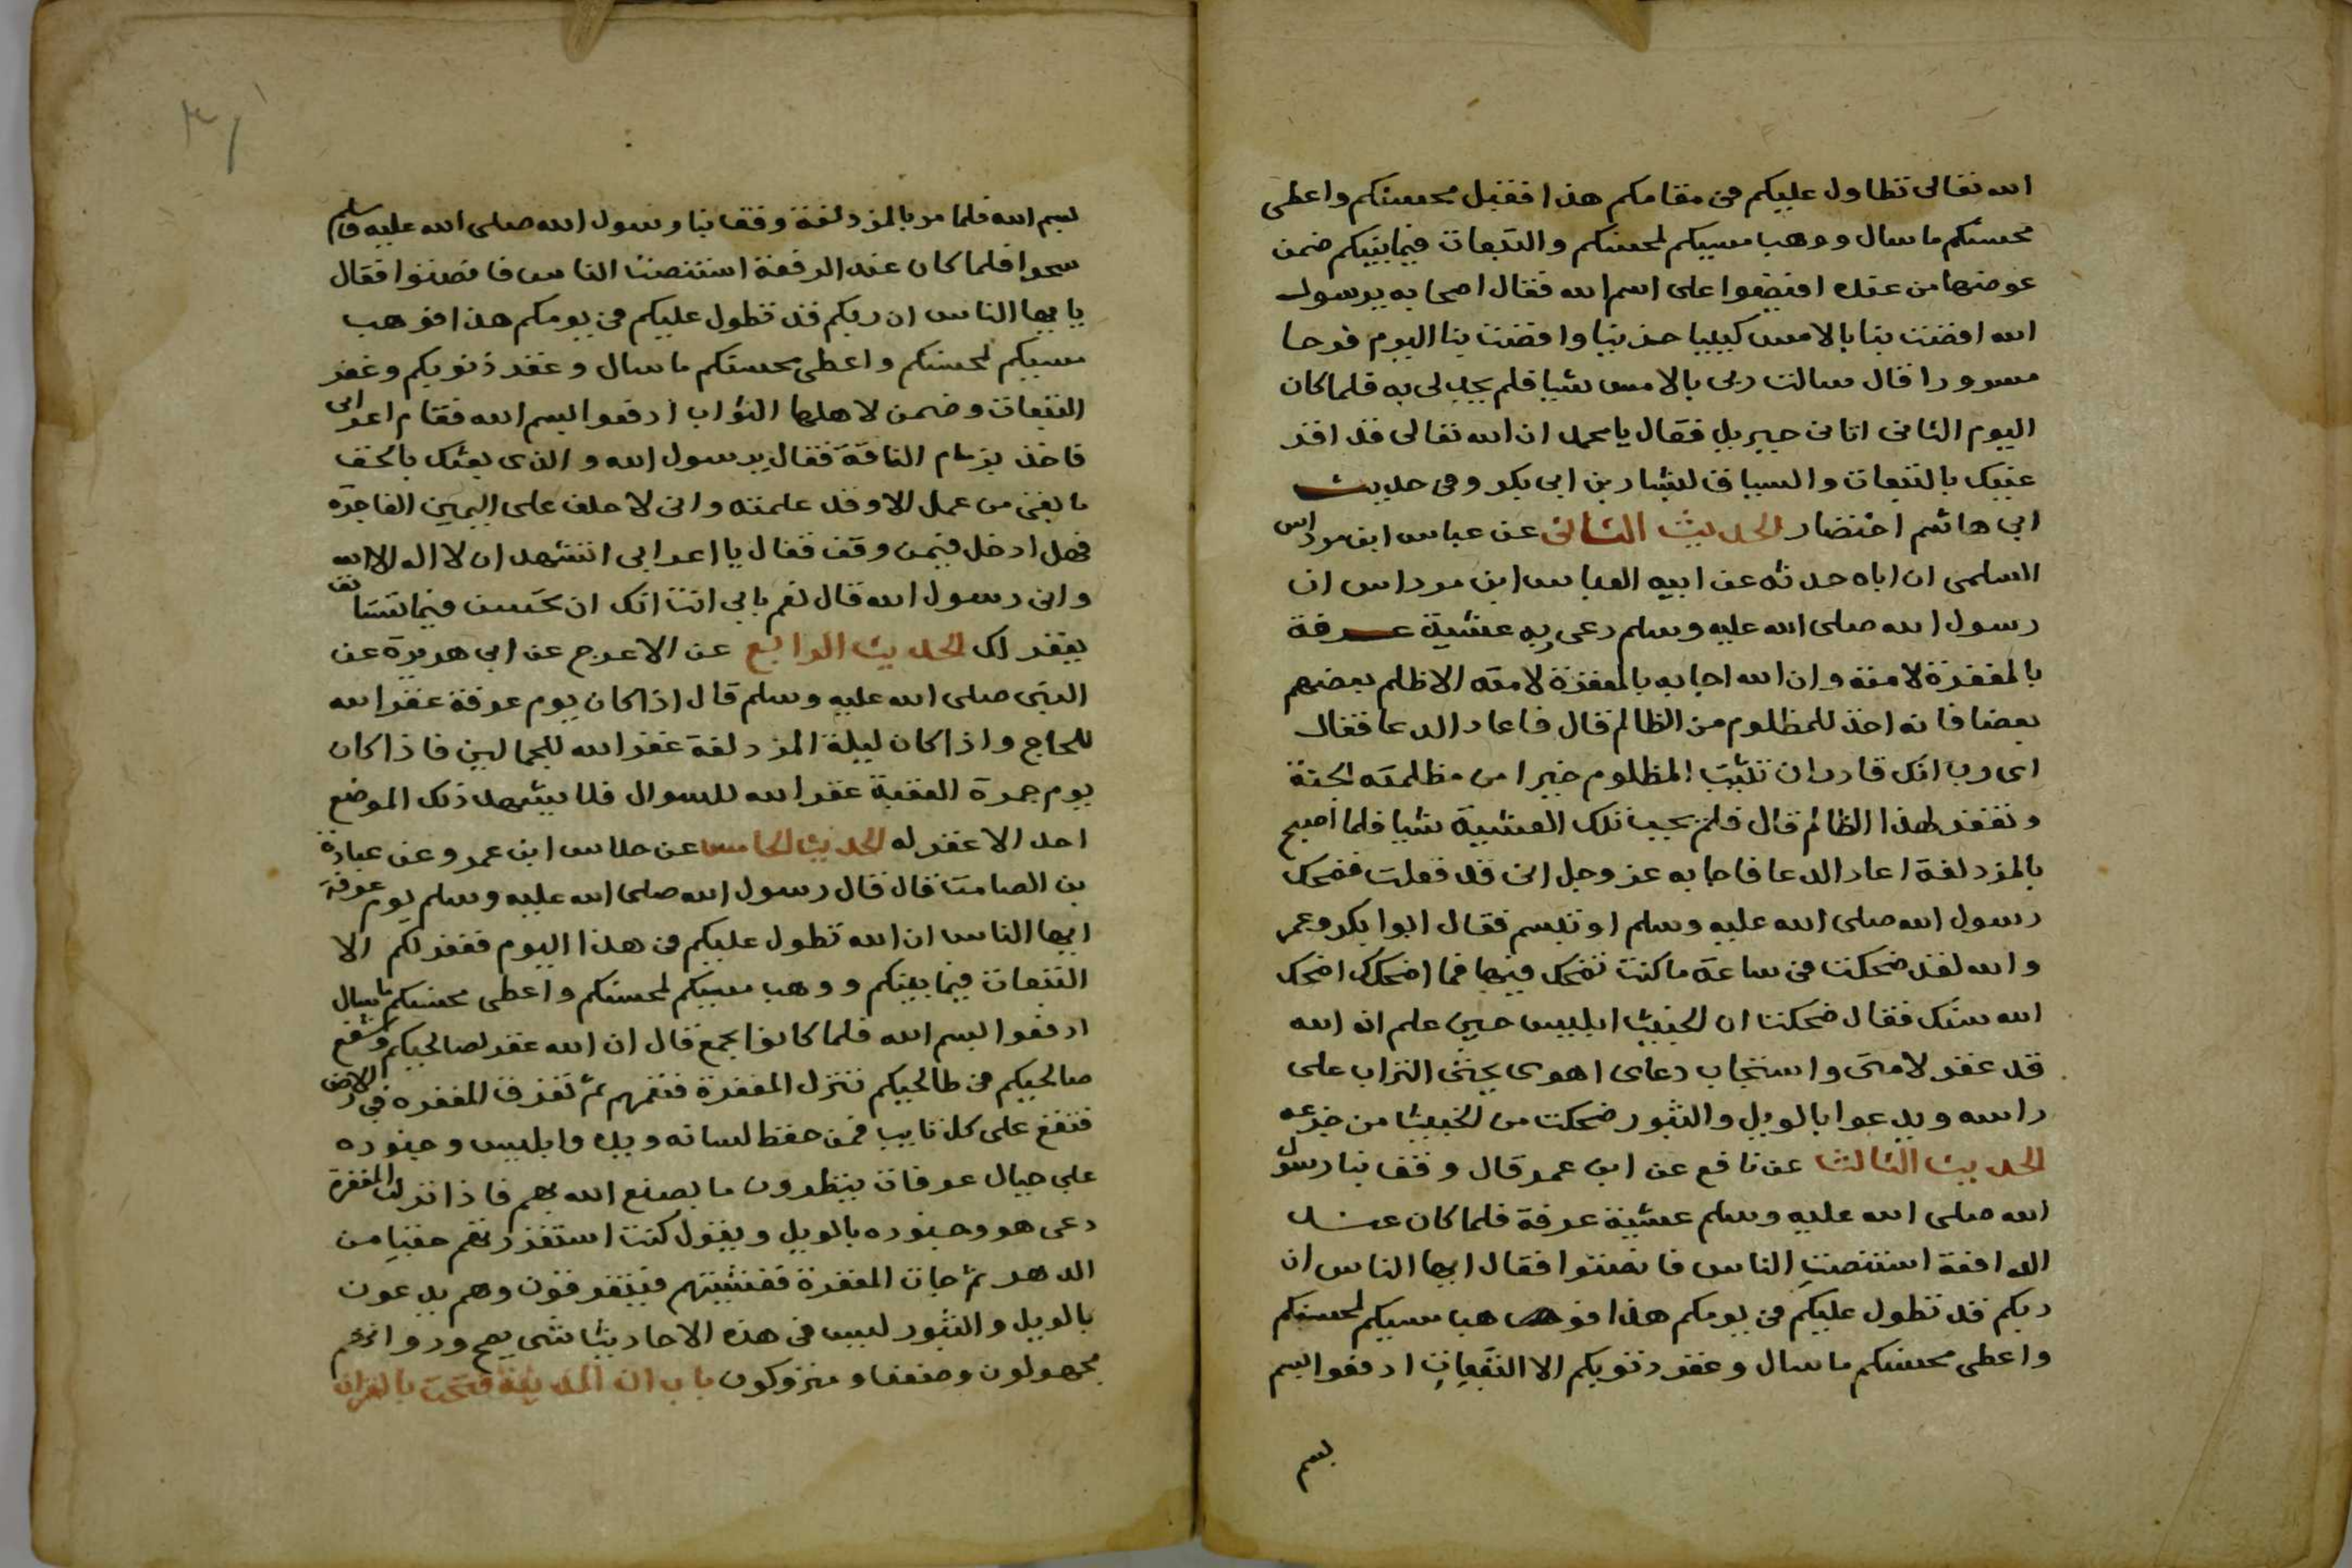 الله تعالى تطاول عليكم في مقامكم هذا فقبل محسنكم واعطى
محسنكم ما سال ووهب مسيكم لمحسنكم والتبعات فيما بينكم ضمن
عوضها من عنده افيضوا على اسم الله فقال اصحابه يرسول
الله افضت بنا بالامس كييبا حزينا وافضت بنا اليوم فرحا
مسرورا قال سالت ربي بالامس شيا فلم يجد لي به فلما كان
اليوم الثاني اتاني جبريل فقال يا محمد ان الله تعالى قد اقر
عينيك بالتبعات والسياق لبشار بن ابي بكر وفي حديث
ابي هاشم اختصار الحديث الثاني عن عباس ابن مرداس
السلمي ان اباه حدثه عن ابيه العباس ابن مرداس ان
رسول الله صلى الله عليه وسلم دعى ربه عشية عرفة
بالمغفرة لامته وان الله اجابه بالمغفرة لامته الا ظلم بعضهم
بعضا فانه اخذ للمظلوم من الظالم قال فاعاد الدعا فقال
اى رب انك قادر ان تثيب المظلوم خيرا من مظلمته الجنة
وتغفر لهذا الظالم قال فلم يجب تلك العشية شيا فلما اصبح
بالمزدلفة اعاد الدعا فاجابه عز وجل اني قد فعلت فضحك
رسول الله صلى الله عليه وسلم او تبسم فقال ابوا بكر وعمر
والله لقد ضحكت في ساعة ما كنت تضحك فيها فما اضحكك اضحك
الله سنك فقال ضحكت ان الخبيث ابليس حين علم ان الله
قد غفر لامتى واستجاب دعاى اهوى يحثى التراب على
راسه ويدعوا بالويل والثبور ضحكت من الخبيث من جزعه
الحديث الثالث عن نافع عن ابن عمر قال وقف بنا رسول
الله صلى الله عليه وسلم عشية عرفة فلما كان عند
الدافعة استنصت الناس فانصتوا فقال ايها الناس ان
ربكم قد تطول عليكم في يومكم هذا فوهب مسيكم لمحسنكم
واعطى محسنكم ما سال وغفر ذنوبكم الا التبعات ادفعوا بسم
بسم
بسم الله فلما مر بالمزدلفة وقف بنا رسول الله صلى الله عليه وسلم
سحرا فلما كان عند الدفعة استنصت الناس فانصتوا فقال
يا ايها الناس ان ربكم قد تطول عليكم في يومكم هذا فوهب
مسيكم لمحسنكم واعطى محسنكم ما سال وغفر ذنوبكم وغفر
التبعات وضمن لاهلها الثواب ادفعوا بسم الله فقام اعرابي
فاخذ بزمام الناقة فقال يرسول الله والذى بعثك بالحق
ما بقى من عمل الا وقد علمته واني لا حلف على اليمين الفاجرة
فهل ادخل فيمن وقف فقال يا اعرابي اتشهد ان لا اله الا الله
واني رسول الله قال نعم بابي انت انك ان تحسن فيما تستانف
يغفر لك الحديث الرابع عن الاعرج عن ابي هريرة عن
النبي صلى الله عليه وسلم قال اذا كان يوم عرفة غفر الله
للحاج واذا كان ليلة المزدلفة غفر الله للجمالين فاذا كان
يوم جمرة العقبة غفر الله للسوال فلا يشهد ذلك الموضع
احد الا غفر له الحديث الخامس عن خلاس ابن عمرو عن عبادة
بن الصامت قال قال رسول الله صلى الله عليه وسلم يوم عرفة
ايها الناس ان الله تطول عليكم في هذا اليوم فغفر لكم الا
التبعات فيما بينكم ووهب مسيكم لمحسنكم واعطى محسنكم ما سال
ادفعوا بسم الله فلما كانوا بجمع قال ان الله غفر لصالحيكم وشفع
صالحيكم في طالحيكم تنزل المغفرة فتعمهم ثم تفرق المغفرة في الارض
فتقع على كل تايب فمن حفظ لسانه ويده وابليس وجنوده
على جبال عرفات ينظرون ما يصنع الله بهم فاذا نزلت المغفرة
دعى هو وجنوده بالويل ويقول كنت استفززتهم حقبا من
الدهر ثم جات المغفرة فغشيتهم فيتفرقون وهم يدعون
بالويل والثبور ليس في هذه الاحاديث شى يصح ورواتهم
مجهولون وضعفا ومتروكون باب ان المدينة فتحت بالقران